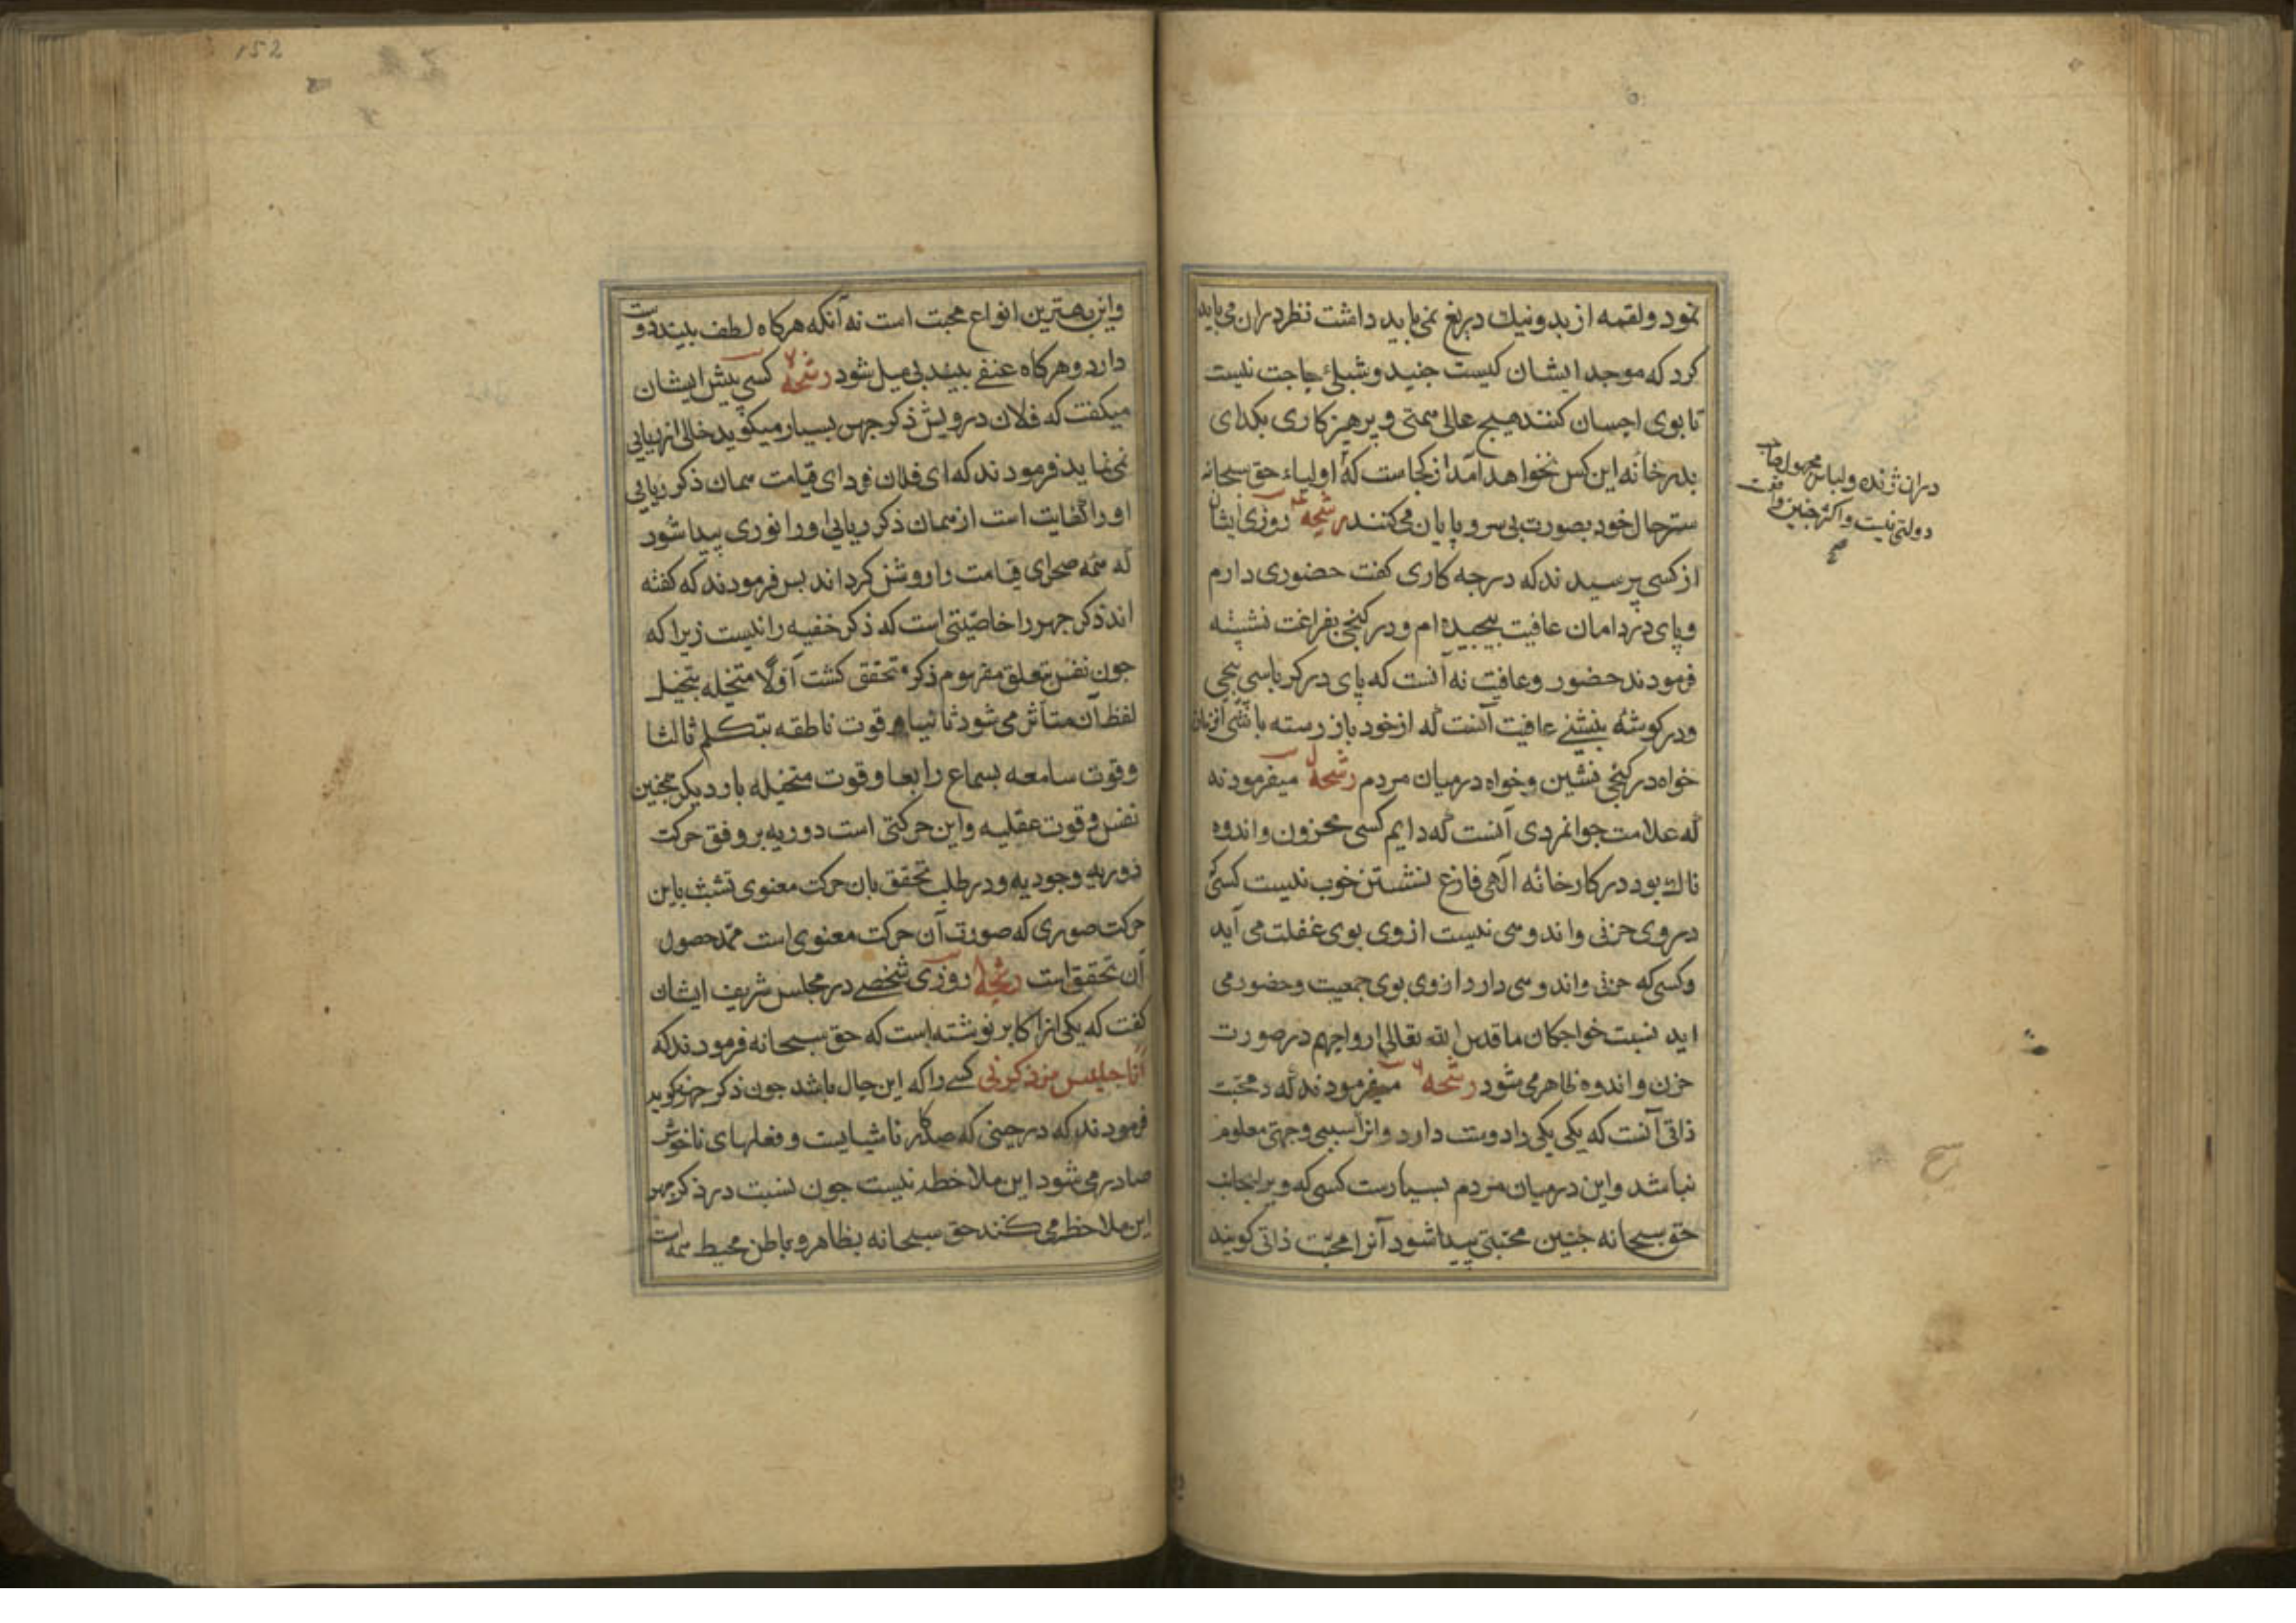 نمود ولقمه از بد ونیك دریغ نمی باید داشت نظر دران می باید
کرد که موجد ایشان کیست جنید وشبلی حاجت نیست
تا بوی احسان کنند هیچ عالی همتی وپرهیزکاری بکدای
بدر خانه این کس نخواهد آمد از کجاست که اولیاء حق سبحانه
ستر حال خود بصورت بی سر و پایان می کنند رشحه روزی ایشان
از کسی پرسیدند که درجه کاری کفت حضوری دارم
وپای در دامان عافیت پیچیده ام ودر کنجی بفراغت نشسته
فرمودند حضور وعافیت نه آنست که پای در کرباسی پیچی
ودر کوشه بنشینی عافیت آنست که از خود باز رسته باشی
خواه در کنجی نشین وخواه درمیان مردم رشحه میفرمودند
که علامت جوانمردی آنست که دایم کسی محزون واندوه
ناك بود در کارخانه آلهی فارغ نشستن خوب نیست کسی
در وی حزنی واندوهی نیست از وی بوی غفلت می آید
وکسی که حزنی واندوهی دارد از وی بوی جمعیت وحضور می
اید نسبت خواجکان ما قدس الله تعالی ارواحهم در صورت
حزن واندوه ظاهر می شود رشحه ۶ میفرمودند که محبت
ذاتی آنست که یکی یکی را دوست دارد وانرا سببی وجهتی معلوم
نباشد واین درمیان مردم بسیارست کسی که ویرا بجانب
حق سبحانه چنین محبتی پیدا شود آنرا محبت ذاتی کویند
دران ژنده ولباس مجهول صاحب
دولتی نیست واکثر چنین واقعست
صح
152
واین بهترین انواع محبت است نه آنکه هرکاه لطف بیند دوست
دارد وهرکاه عنفی بیند بی میل شود رشحه ۷ کسی پیش ایشان
میکفت که فلان درویش ذکر جهر بسیار میکوید خالی از ریایی
نمی نماید فرمودند که ای فلان فردای قیامت همان ذکر ریایی
او را کفایت است از همان ذکر ریایی او را نوری پیدا شود
که همه صحرای قیامت را روشن کرداند پس فرمودند که کفته
اند ذکر جهر را خاصیتی است که ذکر خفیه را نیست زیرا که
چون نفس بتعلق مفهوم ذکر متحقق کشت اولا متخیله بتخیل
لفظ آن متاثر می شود ثانیا قوت ناطقه بتکلم ثالثا
وقوت سامعه بسماع رابعا وقوت متخیله بار دیکر همچنین
نفس وقوت عقلیه واین حرکتی است دوریه بر وفق حرکت
دوریه وجودیه ودر طلب تحقق بان حرکت معنوی تشبث باین
حرکت صوری که صورت آن حرکت معنوی است ممد حصول
آن تحقق است رشحه روزی شخصی در مجلس شریف ایشان
کفت که یکی از اکابر نوشته است که حق سبحانه فرمودند که
انا جلیس من ذکرنی کسی را که این حال باشد چون ذکر جهر کوید
فرمودند که در حینی که صد کار ناشایست وفعلهای ناخوش
صادر می شود این ملاحظه نیست چون نسبت در ذکر جهر
این ملاحظه می کنند حق سبحانه بظاهر وباطن محیط همه است